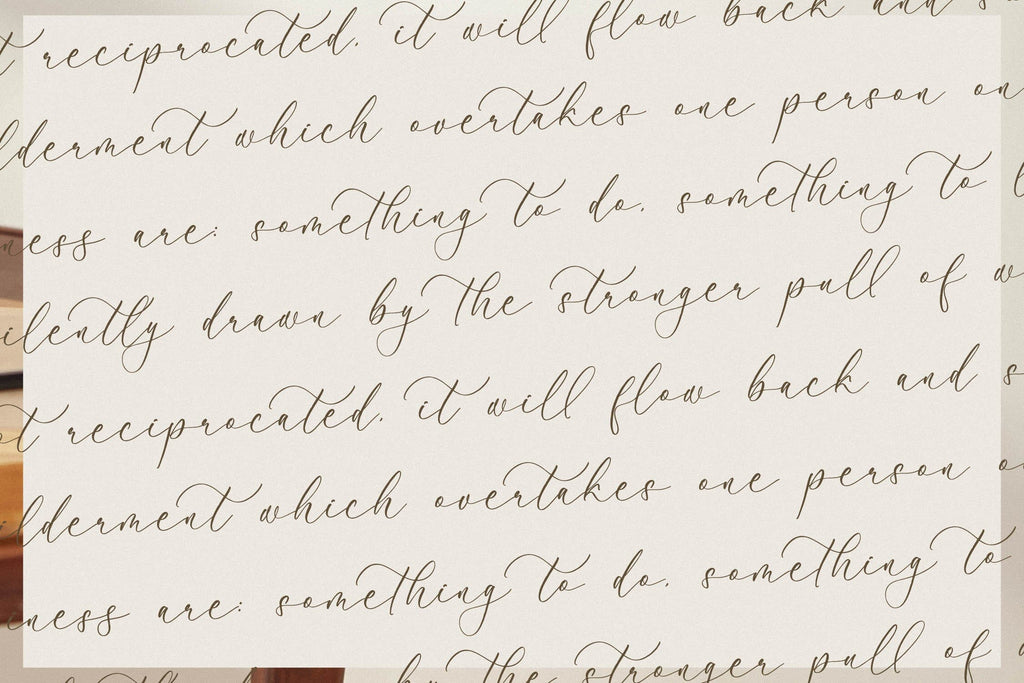 t reciprocated, it will flow back and s
lderment which overtakes one person on
ness are: something to do, something to l
ilently drawn by the stronger pull of w
ot reciprocated, it will flow back and s
ilderment which overtakes one person o
iness are: something to do, something to
by the stronger pull of